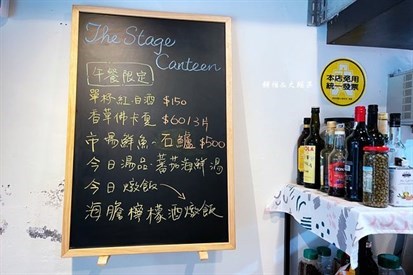 The Stage
Canteen
午餐限定
單杯紅白酒 $150
香草佛卡夏 $60/3片
市場鮮魚-石鱸 $500
今日湯品-蕃茄海鮮湯
今日燉飯
海膽檸檬酒燉飯
本店免用
統一發票